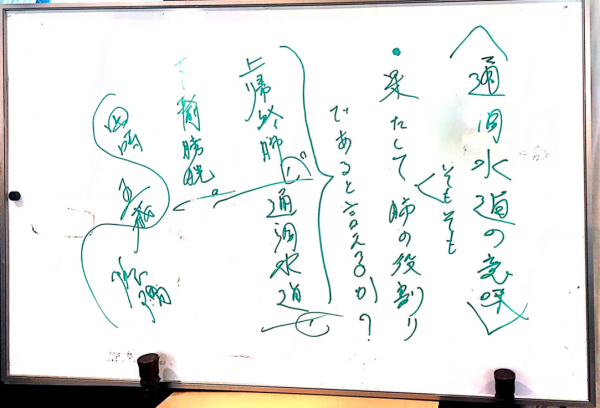 〈通調水道の意味〉
そもそも
・果たして肺の役割り
であると言えるか?
通調水道
上帰於肺
下輸膀胱
四時 五臓 陰陽